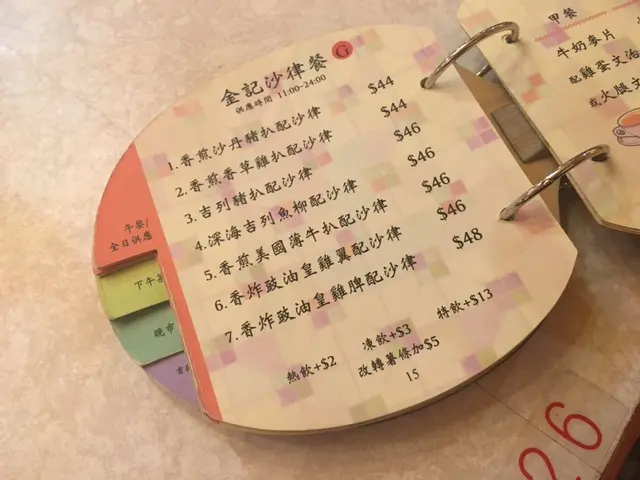 金記沙律餐 G
供應時間 11:00-24:00
1.香煎沙丹豬扒配沙律 $44
2.香煎香草雞扒配沙律 $44
3.吉列豬扒配沙律 $46
4.深海吉列魚柳配沙律 $46
5.香煎美國薄牛扒配沙律 $46
6.香炸豉油皇雞翼配沙律 $46
7.香炸豉油皇雞脾配沙律 $48
熱飲+$2 凍飲+$3 特飲+$13
改轉薯條加$5
15
午餐/
全日供應
下午茶
晚市
甲餐
牛奶麥片
配雞蛋文治
或火腿文
26